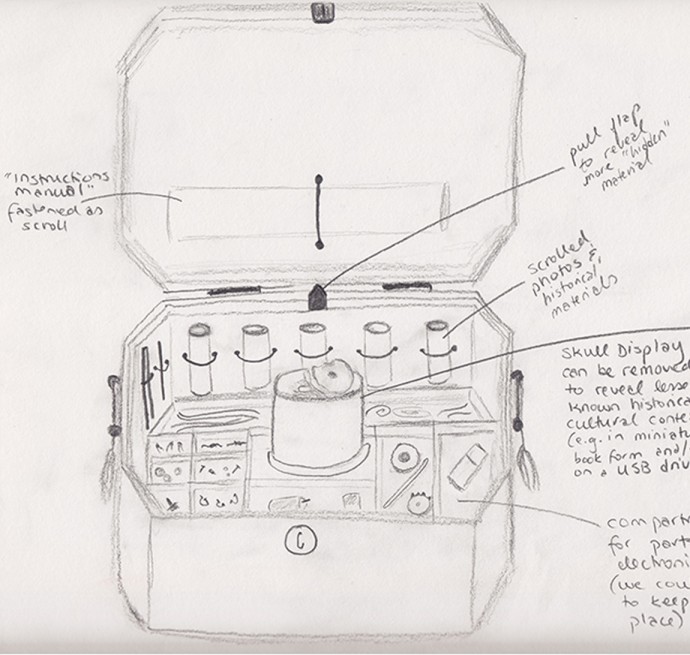 "Instructions
manual"
fastened as
scroll
pull flap
to reveal
more "hidden"
material
scrolled
photos &
historical
materials
Skull Display
can be removed
to reveal lesse
known historica
cultural conte
(e.g. in miniatu
book form and/
on a USB driv
compart
for part
electroni
(we cou
to keep
place)
C